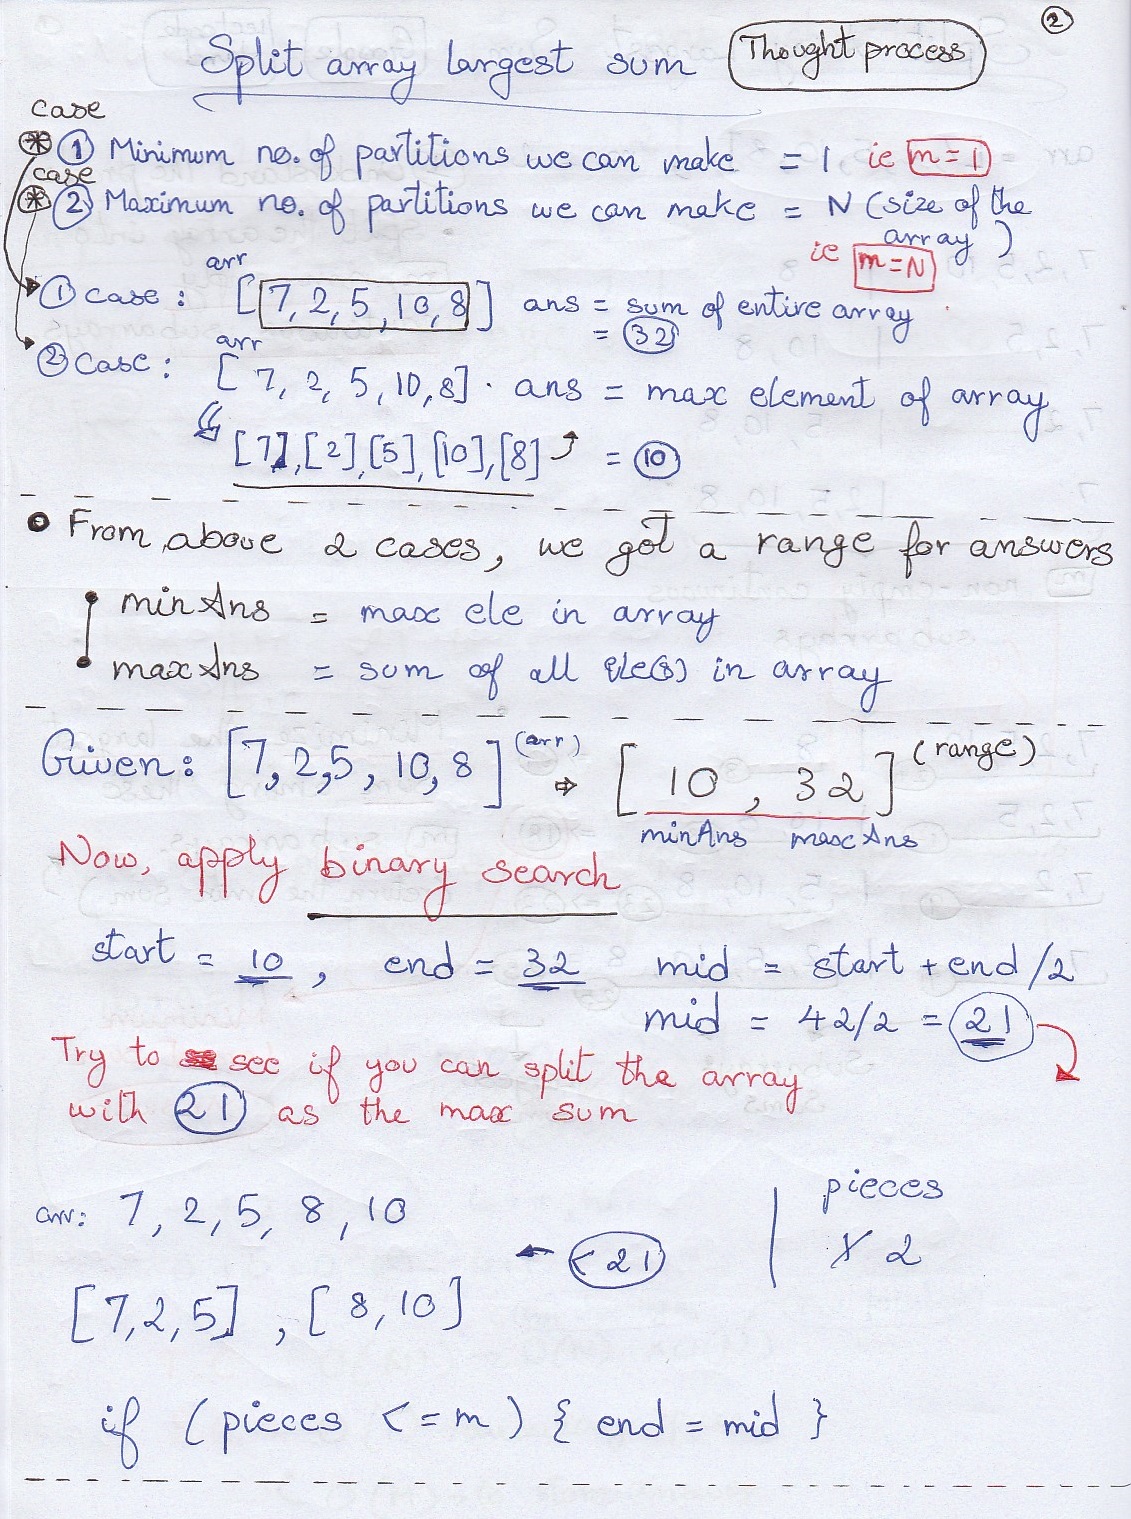 2
Split array largest sum Thought process
case
* 1 Minimum no. of partitions we can make = 1 ie m = 1
case
* 2 Maximum no. of partitions we can make = N (size of the
array)
ie m = N
arr
1 case : [7, 2, 5, 10, 8] ans = sum of entire array
= 32
arr
2 case : [7, 2, 5, 10, 8] . ans = max element of array
[7], [2], [5], [10], [8] = 10
From above 2 cases, we got a range for answers
minAns = max ele in array
maxAns = sum of all ele(s) in array
Given : [7, 2, 5, 10, 8] (arr) ⇒ [10, 32] (range)
minAns maxAns
Now, apply binary search
start = 10, end = 32 mid = start + end /2
mid = 42/2 = 21
Try to see if you can split the array
with 21 as the max sum
pieces
arr: 7, 2, 5, 8, 10
← < 21 1 2
[7, 2, 5], [8, 10]
if (pieces <= m) { end = mid }